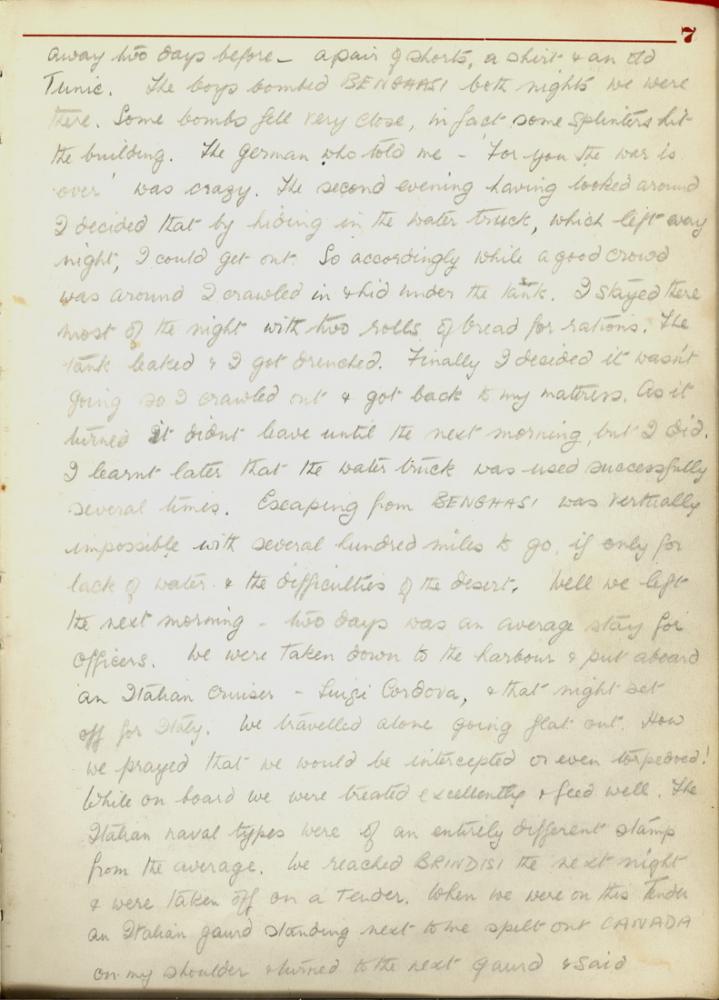 7
away two days before - a pair of shorts, a shirt & an old
Tunic. The boys bombed BENGHASI both nights we were
there. Some bombs fell very close, in fact some splinters hit
the building. The German who told me - 'For you the war is
over' was crazy. The second evening having looked around
I decided that by hiding in the water truck, which left every
night, I could get out. So accordingly while a good crowd
was around I crawled in & hid under the tank. I stayed there
most of the night with two rolls of bread for rations. The
tank leaked & I got drenched. Finally I decided it wasn't
going so I crawled out & got back to my matress. As it
turned it didnt leave until the next morning but I did.
I learnt later that the water truck was used successfully
several times. Escaping from BENGHASI was vertually
impossible with several hundred miles to go, if only for
lack of water & the difficulties of the desert. Well we left
the next morning - two days was an average stay for
officers. We were taken down to the harbour & put aboard
an Italian cruiser - Luigi Cordova, & that night set
off for Italy. We travelled alone going flat out. How
we prayed that we would be intercepted or even torpedoed!
While on board we were treated excellently & feed well. The
Italian naval types were of an entirely different stamp
from the average. We reached BRINDISI the next night
& were taken off on a Tender. When we were on this Tender
an Italian gaurd standing next to me spelt out CANADA
on my shoulder & turned to the next gaurd & said